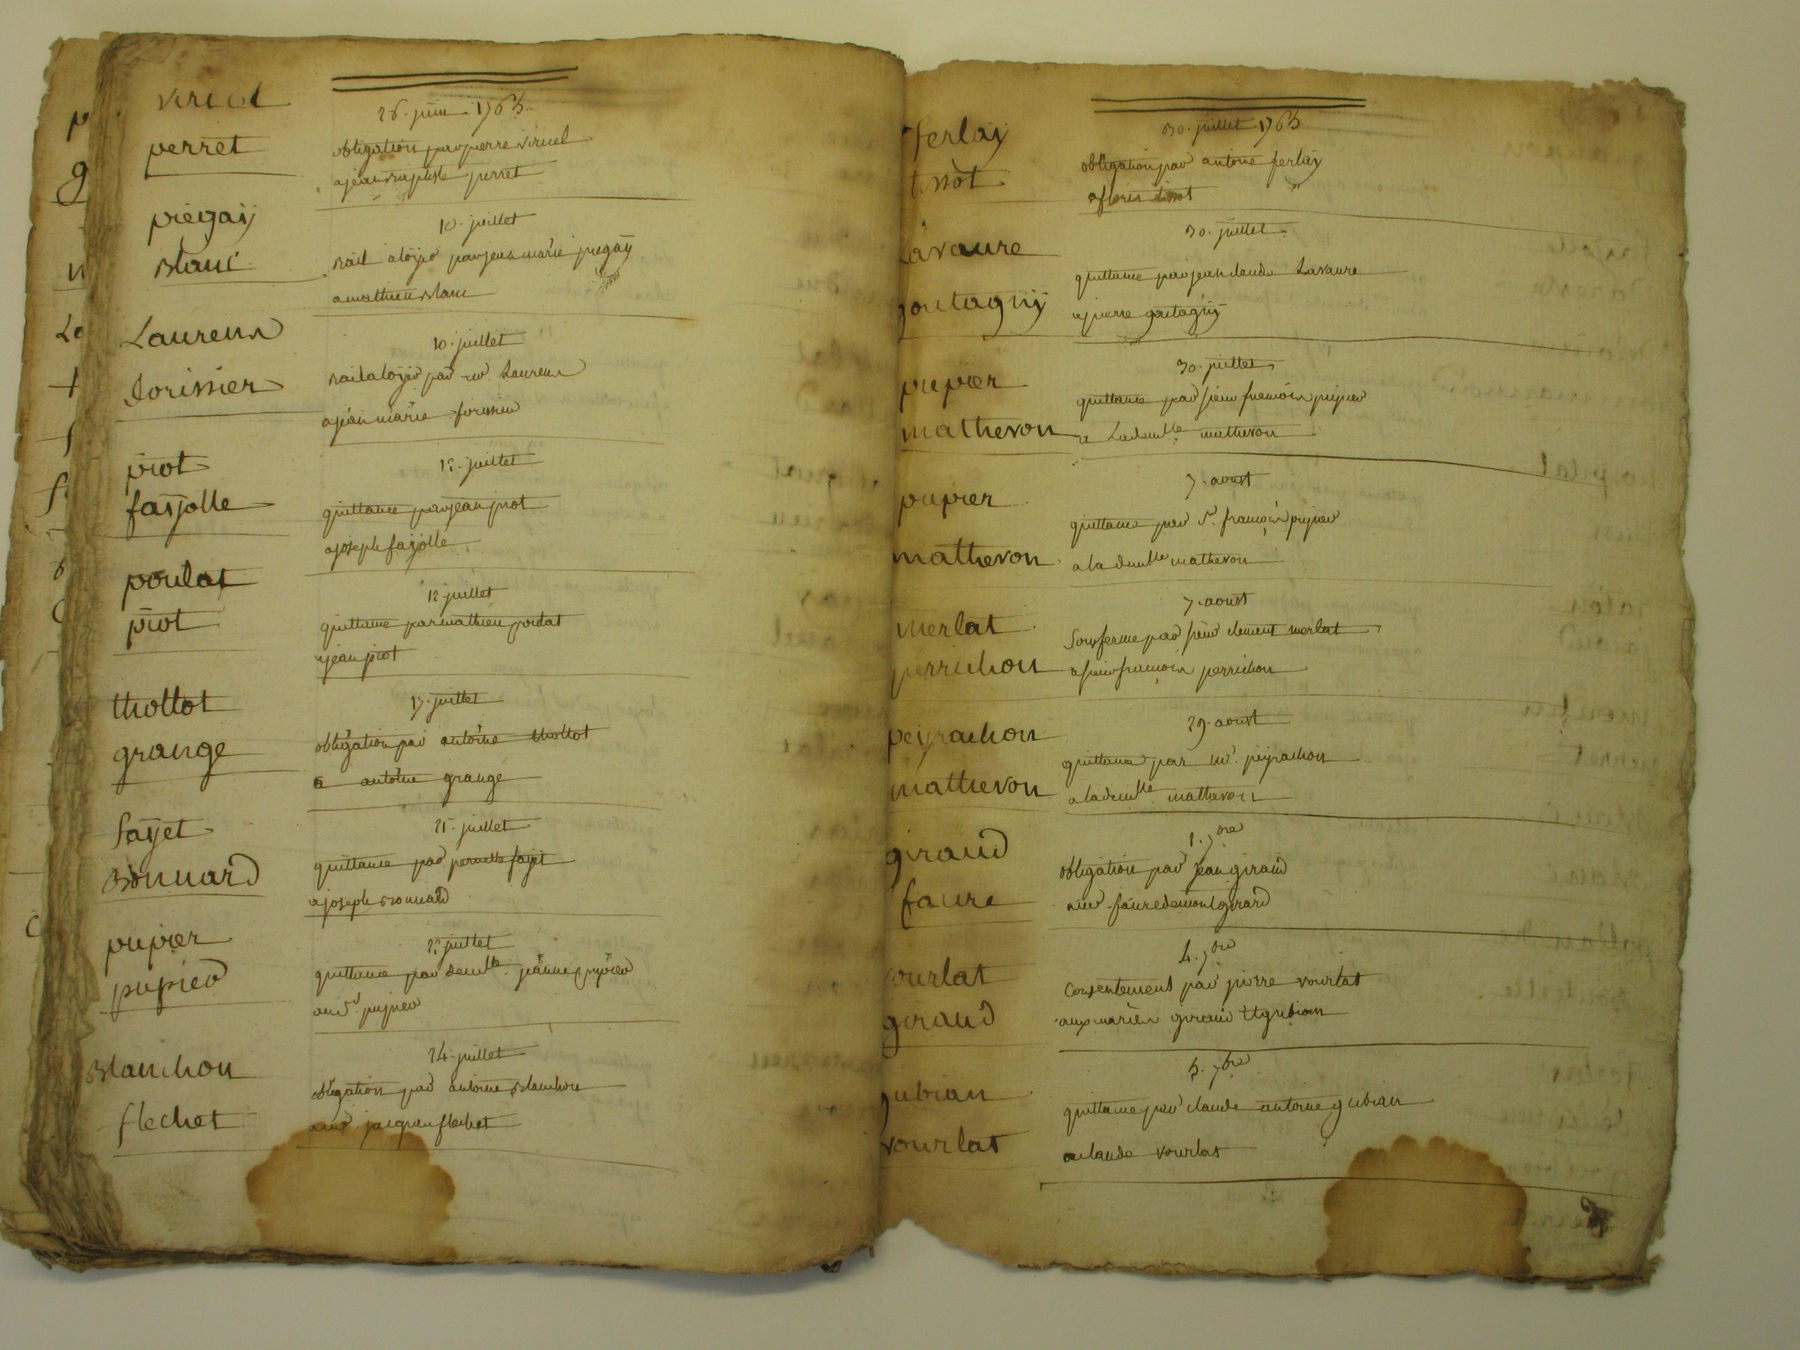 viricel
perret
26. juin 1763.
obligation par pierre viricel
a jean baptiste perret
piegaÿ
Blanc
10. juillet
Bail a loÿer par jean marie piegaÿ
a mathieu Blanc
Laurens
forissier
10. juillet
Bail a loÿer par Laurens
a jean marie forissier
piot
faÿolle
12. juillet
quittance par jean piot
a joseph faÿolle
poulat
piot
12 juillet
quittance par mathieu poulat
a jean piot
thollot
grange
17. juillet
obligation par antoine thollot
a antoine grange
faÿet
Bonnard
21. juillet
quittance par pernette faÿet
a joseph Bonnard
pupier
pupier
22 juillet
quittance par demlle. jeanne pupier
au sr. pupier
Blanchon
flechet
24. juillet
obligation par antoine Blanchon
flechet
ferlaÿ
tissot
30. juillet 1763
obligation par antoine ferlaÿ
a tissot
Lavaure
goutagnÿ
30. juillet
quittance par jean claude Lavaure
a pierre goutagnÿ
pupier
matheron
30. juillet
quittance par sieur francois pupier
a Lademlle matheron
pupier
matheron
7. aoust
quittance par sr. françois pupier
a la demlle matheron
merlat
perrichon
7. aoust
Sousferme par sieur clement merlat
a sieur francois perrichon
peÿrachon
matheron
29. aoust
quittance par mr. peÿrachon
a lademlle. matheron
giraud
faure
1. 7bre
obligation par jean giraud
a mr. faure de montgirard
vourlat
giraud
4. 7bre
Consentement par pierre vourlat
aux mariés giraud et gubian
gubian
vourlat
5. 7bre
quittance par claude antoine gubian
a claude vourlat